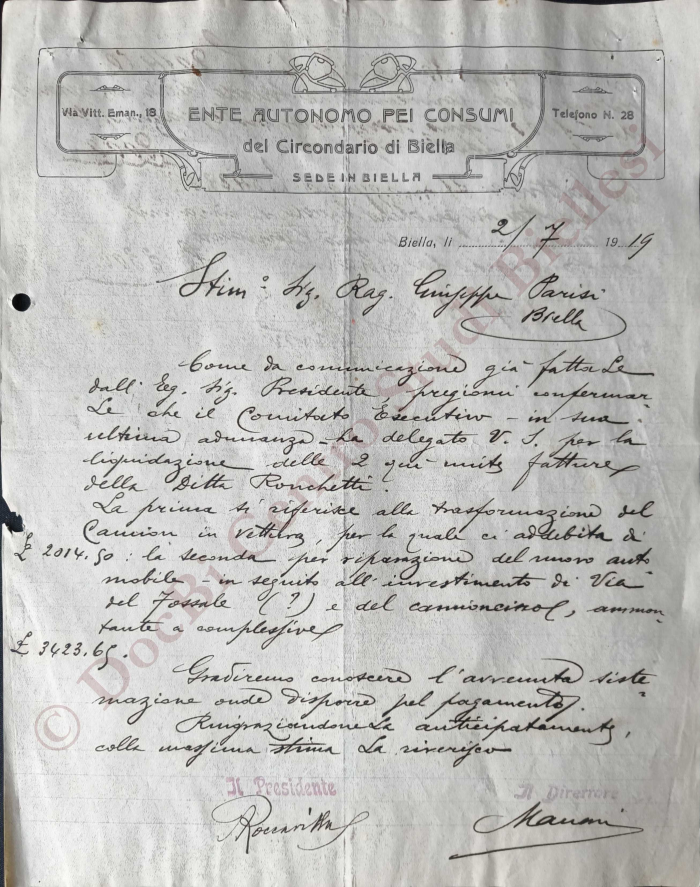 Via Vitt. Eman., 18
ENTE AUTONOMO PEI CONSUMI
Telefono N. 28
del Circondario di Biella
SEDE IN BIELLA
Biella, li 2/7 1919
Stim° Sig. Rag. Giuseppe Parisi
Biella
Come da comunicazione già fattaLe
dall' Eg. Sig. Presidente, pregiomi confermar-
Le che il Comitato Esecutivo - in sua
ultima adunanza - ha delegato V. S. per la
liquidazione delle 2 quì unite fatture
della Ditta Ronchetti.
La prima si riferisce alla trasformazione del
Camion in vettura, per la quale ci addebita di
£ 2014.50: la seconda per riparazione del nuovo auto
mobile - in seguito all'investimento di Via
del Fossale (?) e del camioncino, ammon-
tante a complessive
£ 3423.65.
Gradiremo conoscere l'avvenuta siste-
mazione onde disporre pel pagamento.
RingraziandoneLa anticipatamente,
colla massima stima La riverisco
Il Presidente
Il Direttore
© DocBi Centro Studi Biellesi